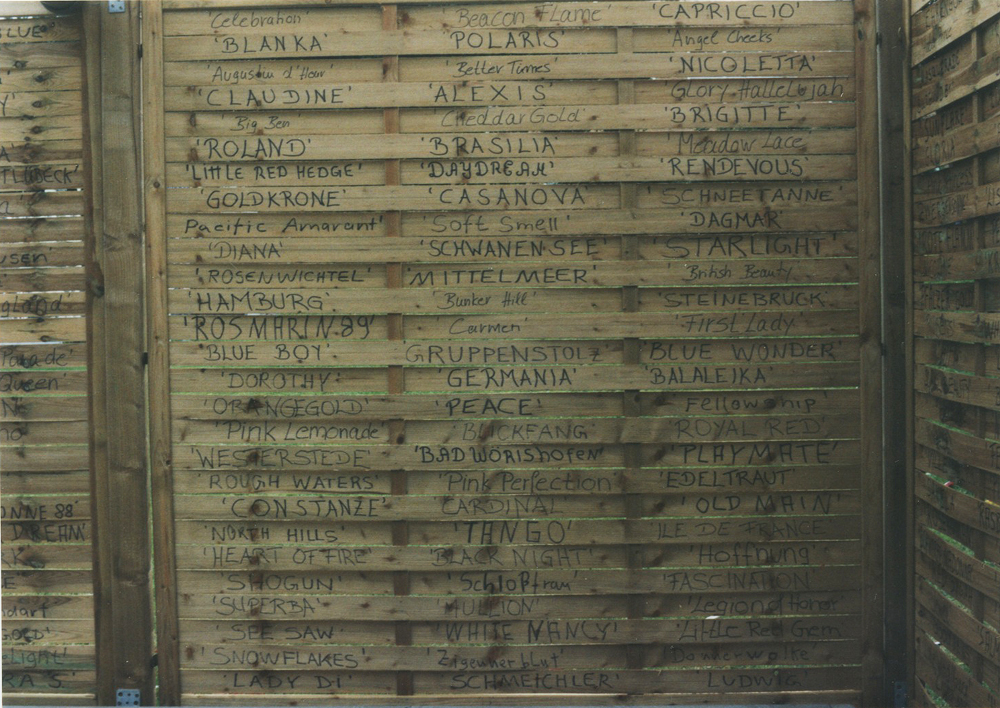 'Celebration' 'Beacon Flame' 'CAPRICCIO'
'BLANKA' 'POLARIS' 'Angel Cheeks'
'Augustin d'Hour' 'Better Times' 'NICOLETTA'
'CLAUDINE' 'ALEXIS' 'Glory Hallelujah
'Big Ben' 'Cheddar Gold' 'BRIGITTE'
'ROLAND' 'BRASILIA' 'Meadow Lace
'LITTLE RED HEDGE' 'DAYDREAM' 'RENDEVOUS'
'GOLDKRONE' 'CASANOVA' 'SCHNEETANNE'
Pacific Amarant' 'Soft Smell' 'DAGMAR'
'DIANA' 'SCHWANEN-SEE' 'STARLIGHT'
'ROSENWICHTEL' 'MITTELMEER' 'British Beauty'
'HAMBURG' 'Bunker Hill' 'STEINEBRUCK'
'ROSMARIN-89' 'Carmen' 'First Lady'
'BLUE BOY' GRUPPENSTOLZ 'BLUE WONDER'
'DOROTHY' 'GERMANIA' 'BALALEIKA'
'ORANGEGOLD' 'PEACE' 'Fellowship'
'Pink Lemonade' 'BLICKFANG' 'ROYAL RED'
'WESTERSTEDE' 'BAD WÖRISHOFEN' 'PLAYMATE'
'ROUGH WATERS' 'Pink Perfection' 'EDELTRAUT'
'CONSTANZE' 'CARDINAL' 'OLD MAIN'
'NORTH HILLS' 'TANGO' 'ILE DE FRANCE'
'HEART OF FIRE' 'BLACK NIGHT' 'Hoffnung'
'SHOGUN' 'Schloßfrau' 'FASCINATION'
'SUPERBA' 'MULLION' 'Legion d Honor'
'SEE SAW' 'WHITE NANCY' 'Little Red Gem
'SNOWFLAKES' 'Zigeunerblut' 'Donnerwolke'
'LADY DI' 'SCHMEICHLER' 'LUDWIG'